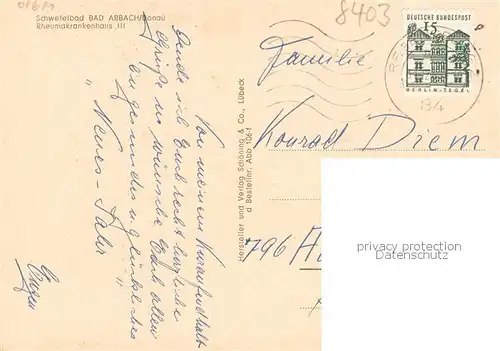 8403
Schwefelbad BAD ABBACH/Donau
Rheumakrankenhaus III
DEUTSCHE BUNDESPOST
15
BERLIN-TEGEL
Familie
Konrad Diem
796
Hersteller und Verlag Schöning & Co., Lübeck
Bestellnr. Abb 106 f
Von meinem Kuraufenthalt
sende ich Euch recht herzliche
Grüße u. wünsche Euch allen
ein gesundes u. glückliches
"Neues-Jahr"
Eugen
privacy protection
ansichtskarten-center.de